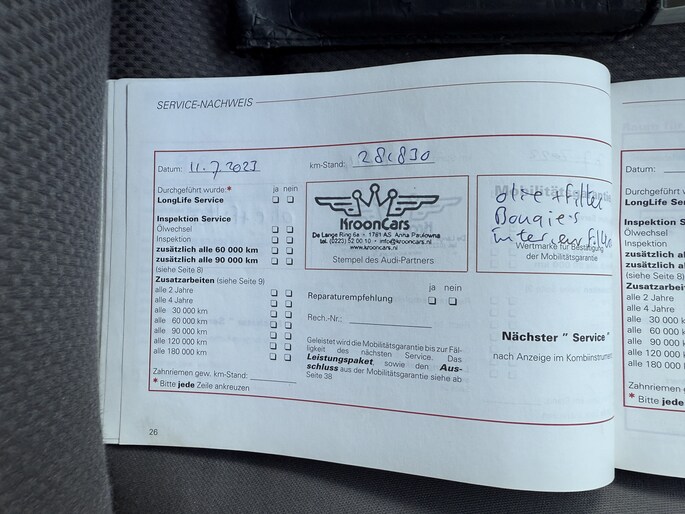 SERVICE-NACHWEIS
Datum: 11.7.2023
km-Stand: 281.830
Durchgeführt wurde: * ja nein
LongLife Service
Inspektion Service
Ölwechsel
Inspektion
zusätzlich alle 60 000 km
zusätzlich alle 90 000 km
(siehe Seite 8)
Zusatzarbeiten (siehe Seite 9)
alle 2 Jahre
alle 4 Jahre
alle 30 000 km
alle 60 000 km
alle 90 000 km
alle 120 000 km
alle 180 000 km
Zahnriemen gew. km-Stand:
* Bitte jede Zeile ankreuzen
KroonCars
De Lange Ring 6a • 1761 AS Anna Paulowna
tel. (0223) 52 00 10 • info@krooncars.nl
www.krooncars.nl
Stempel des Audi-Partners
ja nein
Reparaturempfehlung
Rech.-Nr.:
Geleistet wird die Mobilitätsgarantie bis zur Fäl-
ligkeit des nächsten Service. Das
Leistungspaket, sowie den Aus-
schluss aus der Mobilitätsgarantie siehe ab
Seite 38
olie + filter
Bougie's
interieurfilter
Wertmarke für Bestätigung
der Mobilitätsgarantie
Nächster " Service "
nach Anzeige im Kombiinstrument
26
Datum:
Durchgeführt
LongLife Serv
Inspektion S
Ölwechsel
Inspektion
zusätzlich all
zusätzlich all
(siehe Seite 8)
Zusatzarbeite
alle 2 Jahre
alle 4 Jahre
alle 30 000 k
alle 60 000 k
alle 90 000
alle 120 000
alle 180 000
Zahnriemen
* Bitte jede